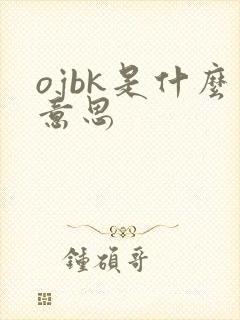 ojbk是什麼
意思
鍾碩哥